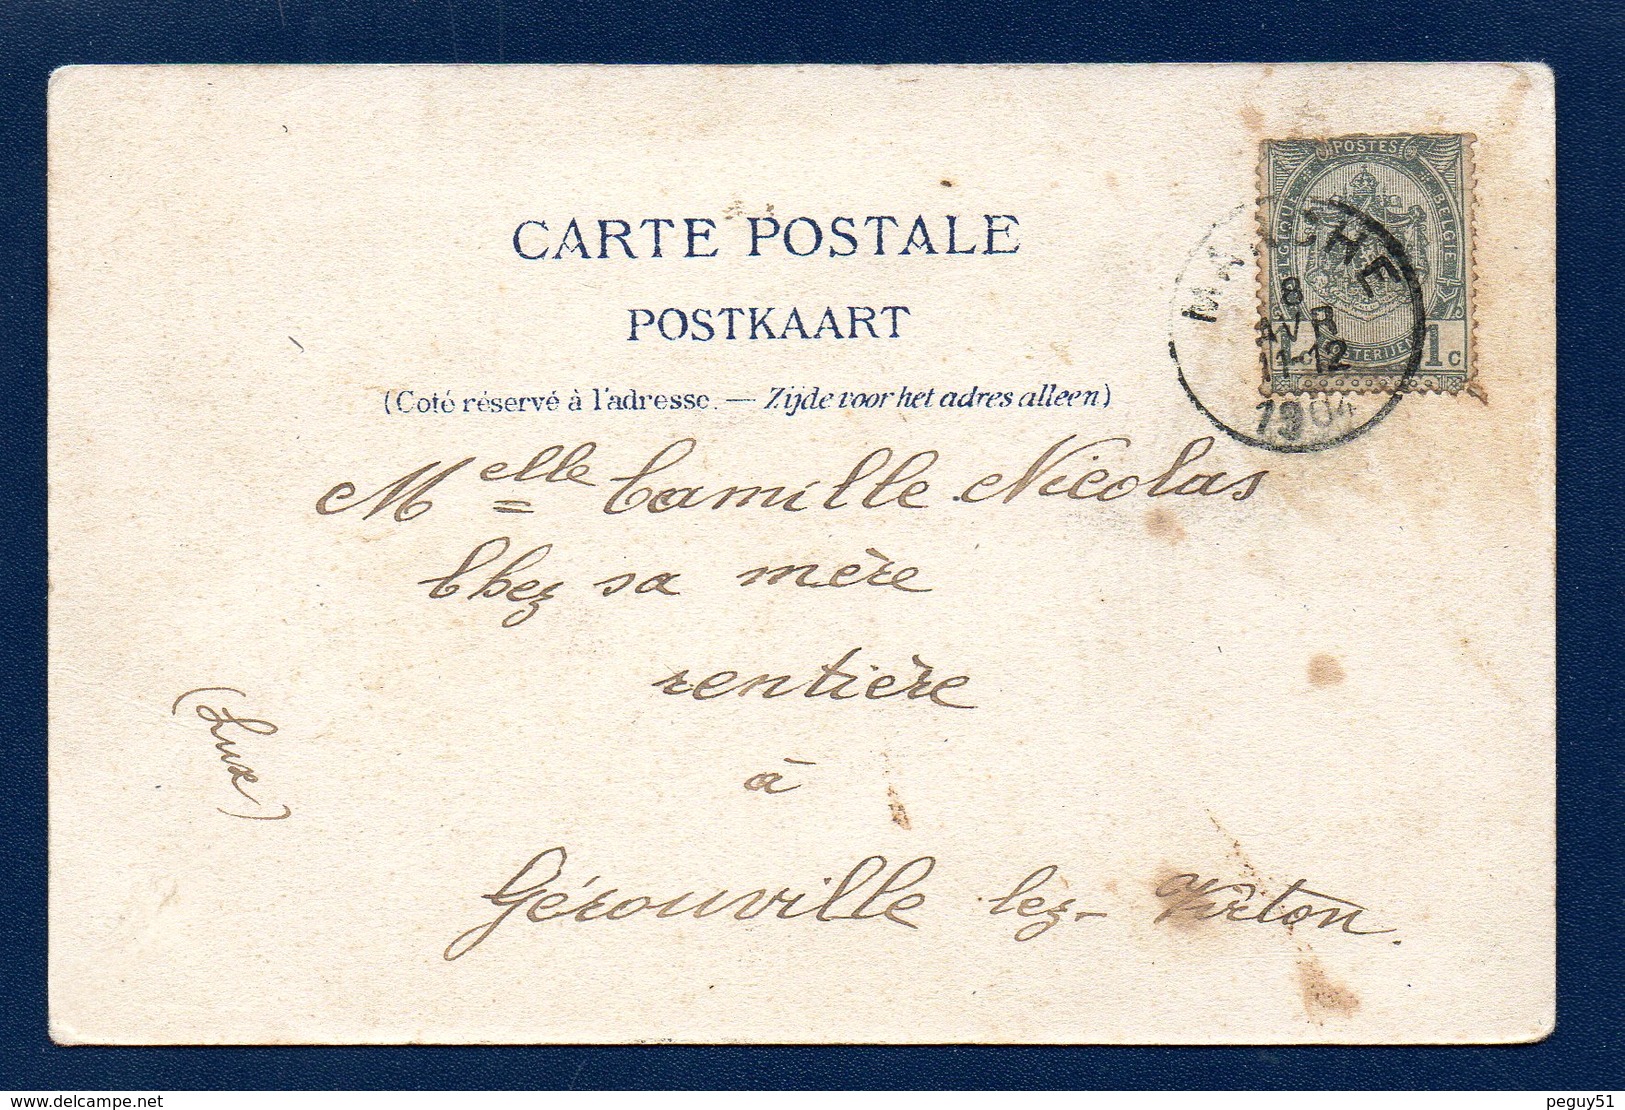 CARTE POSTALE
POSTKAART
(Coté réservé à l'adresse. — Zijde voor het adres alleen)
POSTES
BELGIQUE
BELGIE
1 c
MARCHE
8
AVR
11-12
1904
Melle Camille Nicolas
Chez sa mère
rentière
à
(Lux)
Gérouville lez-Virton.
www.delcampe.net
peguy51